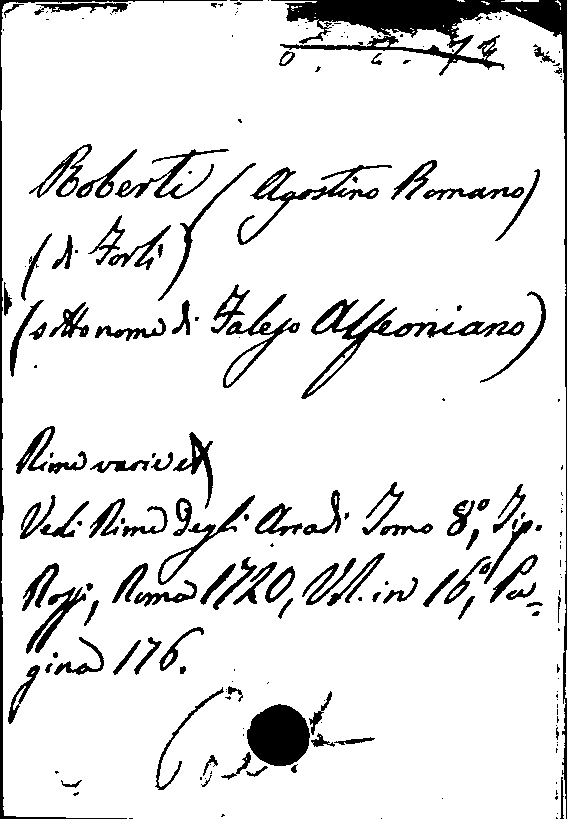 Roberti (Agostino Romano)
(di Forlì)
(sotto nome di Falejo Alfeoniano)
Rime varie
Vedi Rime Degli Arcadi Tomo 8º, Tip.
Rossi, Roma 1720, Vol. in 16º, Pa=
gina 176.